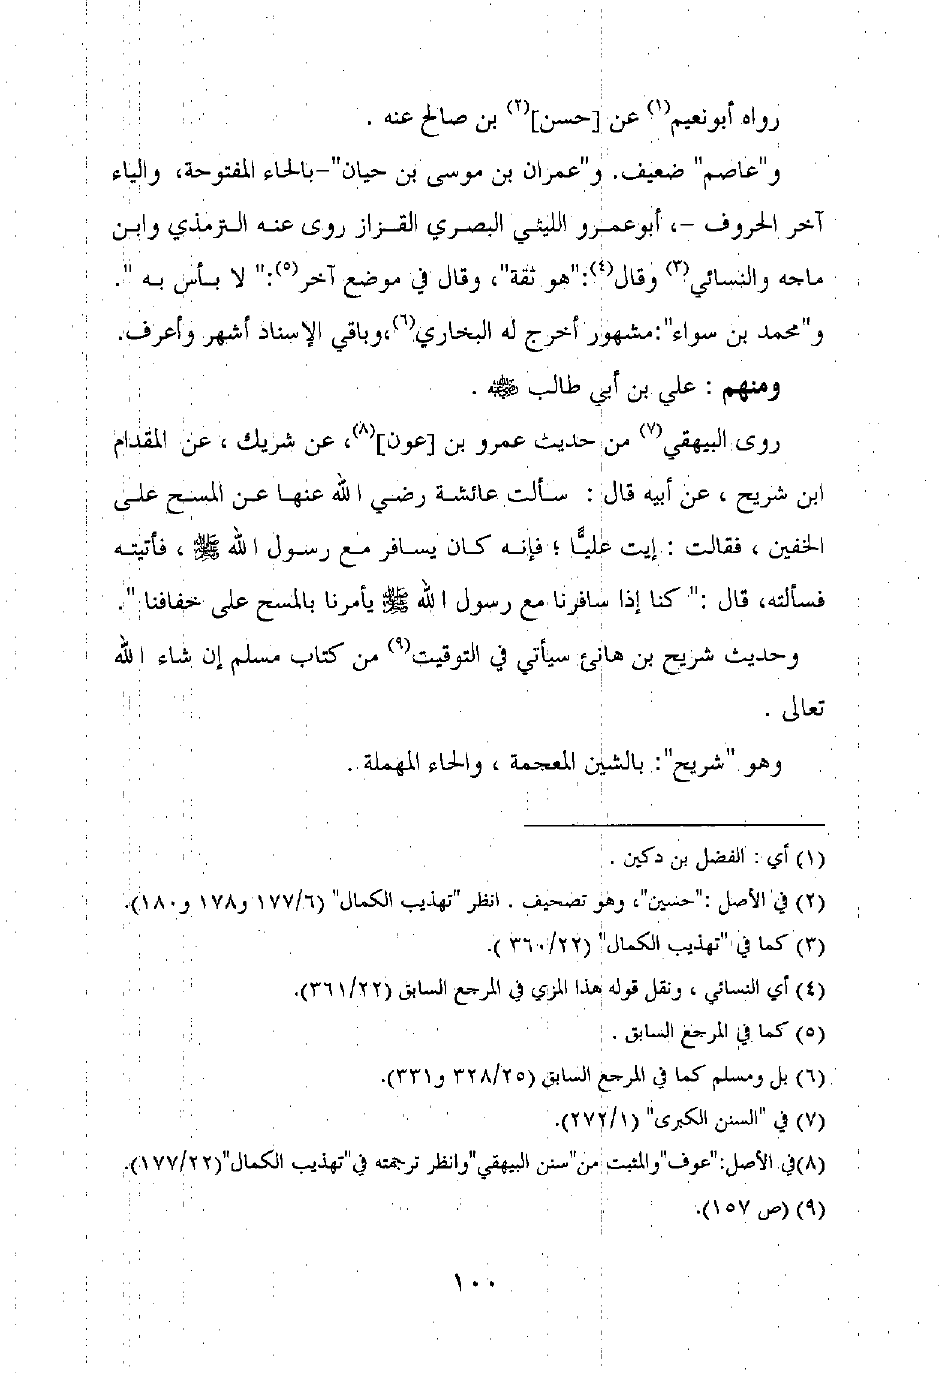 رواه أبونعيم(١) عن [حسن](٢) بن صالح عنه .
و"عاصم" ضعيف. و"عمران بن موسى بن حيان"-بالحاء المفتوحة، والياء
آخر الحروف -، أبوعمرو الليثي البصري القزاز روى عنه الترمذي وابن
ماجه والنسائي(٣) وقال(٤):"هو ثقة"، وقال في موضع آخر(٥):" لا بأس به ".
و"محمد بن سواء":مشهور أخرج له البخاري(٦)،وباقي الإسناد أشهر وأعرف.
ومنهم : علي بن أبي طالب ﷺ .
روى البيهقي(٧) من حديث عمرو بن [عون](٨)، عن شريك ، عن المقدام
ابن شريح ، عن أبيه قال : سألت عائشة رضي الله عنها عن المسح على
الخفين ، فقالت : إيت عليًّا ؛ فإنه كان يسافر مع رسول الله ﷺ ، فأتيته
فسألته، قال :" كنا إذا سافرنا مع رسول الله ﷺ يأمرنا بالمسح على خفافنا ".
وحديث شريح بن هانئ سيأتي في التوقيت(٩) من كتاب مسلم إن شاء الله
تعالى .
وهو "شريح": بالشين المعجمة ، والحاء المهملة .
(١) أي : الفضل بن دكين .
(٢) في الأصل :"حسين"، وهو تصحيف . انظر "تهذيب الكمال" (١٧٧/٦ و١٧٨ و١٨٠).
(٣) كما في "تهذيب الكمال" (٣٦٠/٢٢ ).
(٤) أي النسائي ، ونقل قوله هذا المزي في المرجع السابق (٣٦١/٢٢).
(٥) كما في المرجع السابق .
(٦) بل ومسلم كما في المرجع السابق (٣٢٨/٢٥ و٣٣١).
(٧) في "السنن الكبرى" (٢٧٢/١).
(٨)في الأصل:"عوف"والمثبت من"سنن البيهقي"وانظر ترجمته في"تهذيب الكمال"(١٧٧/٢٢).
(٩) (ص ١٥٧).
١٠٠